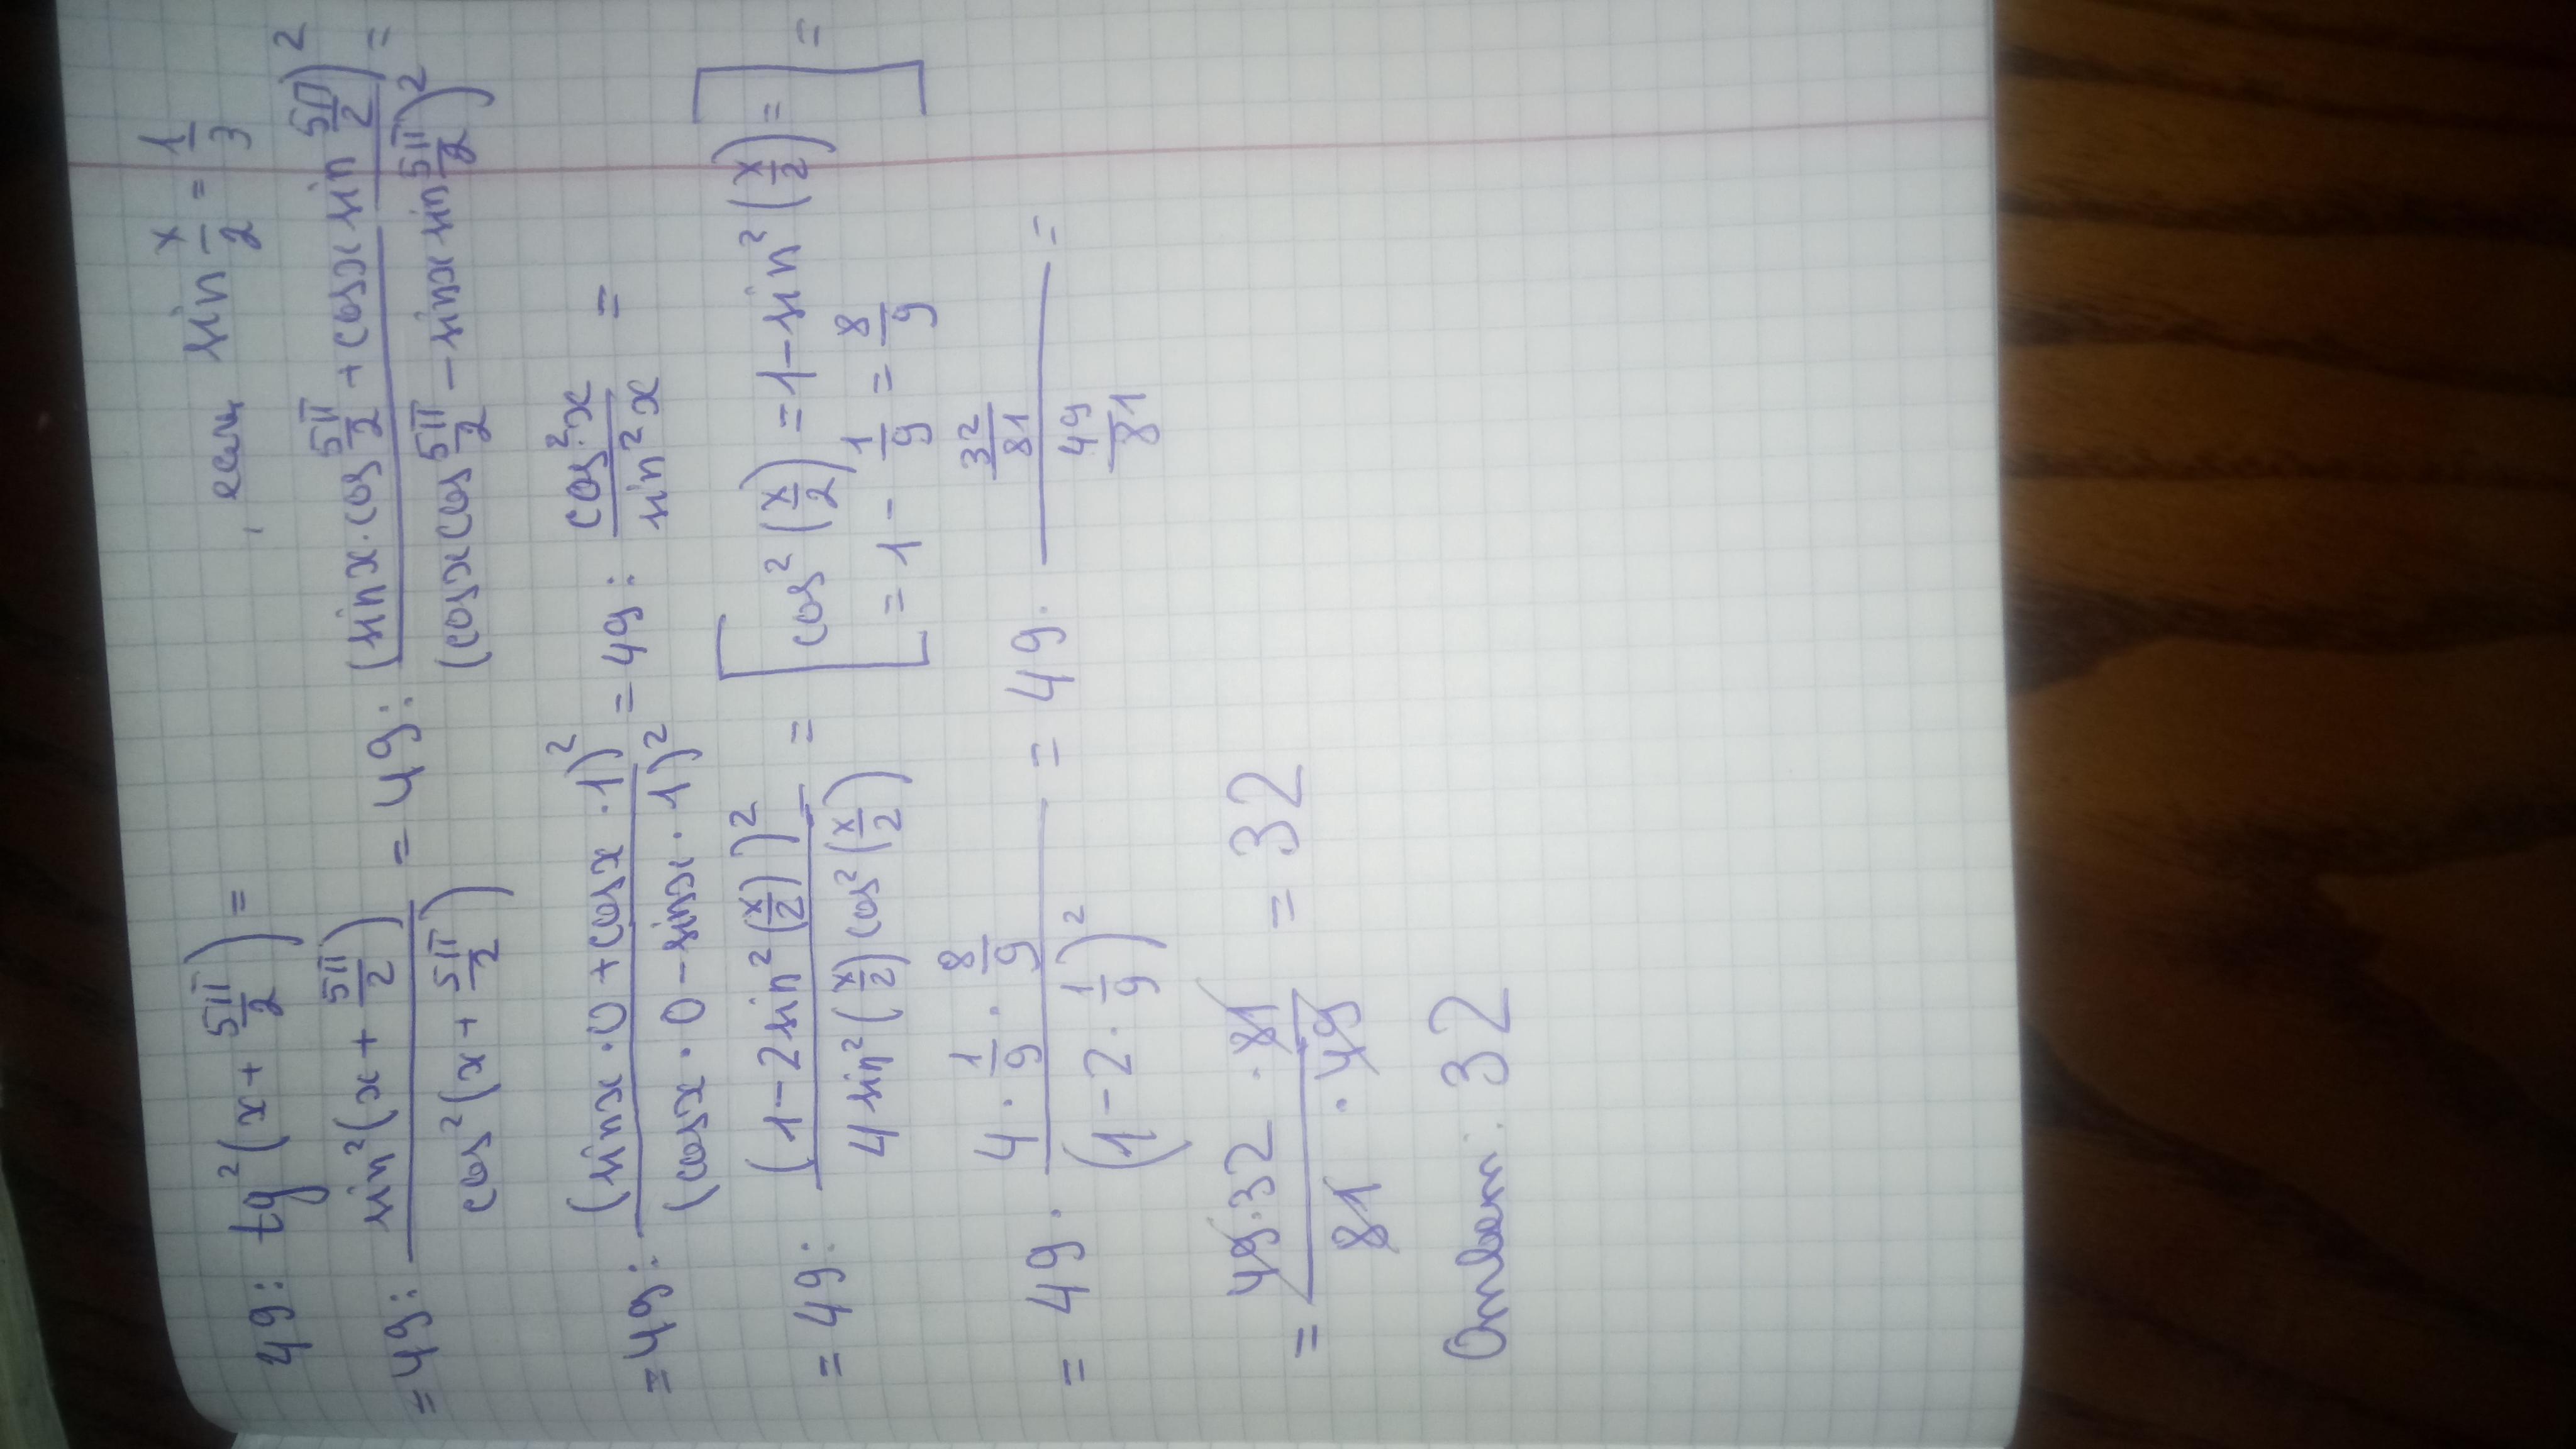 49 : tg²(x + 5π/2) = , если sin x/2 = 1/3
= 49 : sin²(x + 5π/2) / cos²(x + 5π/2) = 49 : (sinx · cos 5π/2 + cosx sin 5π/2)² / (cosx cos 5π/2 − sinx sin 5π/2)² =
= 49 : (sinx · 0 + cosx · 1)² / (cosx · 0 − sinx · 1)² = 49 : cos²x / sin²x =
= 49 : (1 − 2 sin²(x/2))² / 4 sin²(x/2) cos²(x/2) = [cos²(x/2) = 1 − sin²(x/2) =
= 1 − 1/9 = 8/9] =
= 49 · 4 · 1/9 · 8/9 / (1 − 2 · 1/9)² = 49 · 32/81 / 49/81 =
= 49 · 32 · 81 / 81 · 49 = 32
Ответ: 32